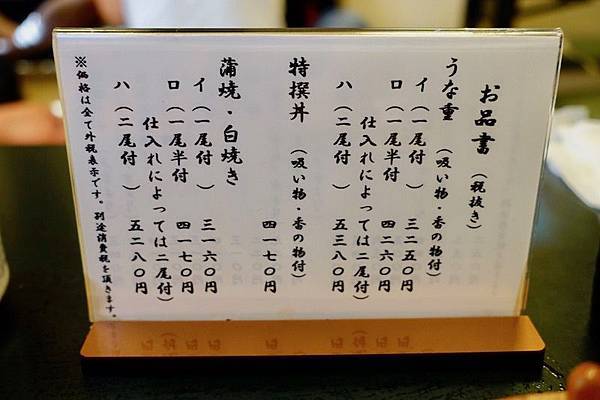 お品書 (税抜き)
うな重 (吸い物・香の物付)
イ(一尾付) 三二五〇円
ロ(一尾半付 四二六〇円
仕入れによっては二尾付)
ハ(二尾付) 五三八〇円
特撰丼 (吸い物・香の物付)
四一七〇円
蒲焼・白焼き
イ(一尾付) 三一六〇円
ロ(一尾半付 四一七〇円
仕入れによっては二尾付)
ハ(二尾付) 五二八〇円
※価格は全て外税表示です。別途消費税を頂きます。